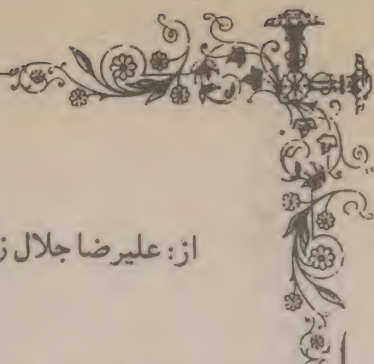 از: علیرضا جلال